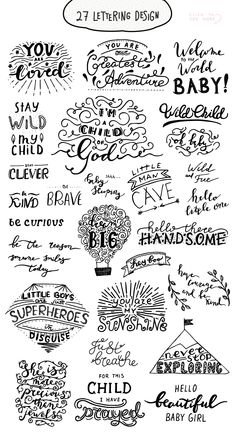 27 LETTERING DESIGN
YOU
ARE
Loved
YOU ARE
our
Greatest
Adventure
Welcome
to the
World
BABY!
STAY
WILD
my
CHILD
I'M
A
CHILD
OF
God
Wild Child
Oh Baby
STAY
CLEVER
Baby
Sleeping
LITTLE
MAN'S
CAVE
Wild
and
Free
be
KIND
BE
BRAVE
hello
little one
be curious
be the reason
someone smiles
today
BIG
hello there
HANDSOME
hey boo
have
courage
and be
kind
LITTLE BOYS
ARE
SUPERHEROES
IN
DISGUISE
you are
my
SUNSHINE
Just
breathe
never
stop
EXPLORING
She is
more
precious
than
jewels
FOR THIS
CHILD
I HAVE
prayed
HELLO
beautiful
BABY GIRL